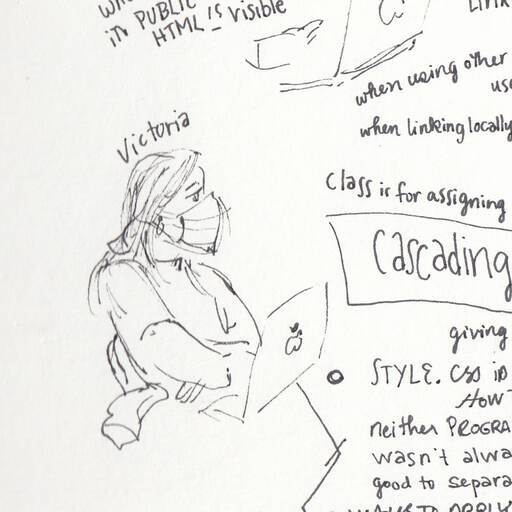 in PUBLIC
HTML IS visible
when using other
when linking locally
Victoria
Class is for assigning
Cascading
giving
STYLE. CSS
HOW
neither PROGRA
wasn't alwa
good to separa